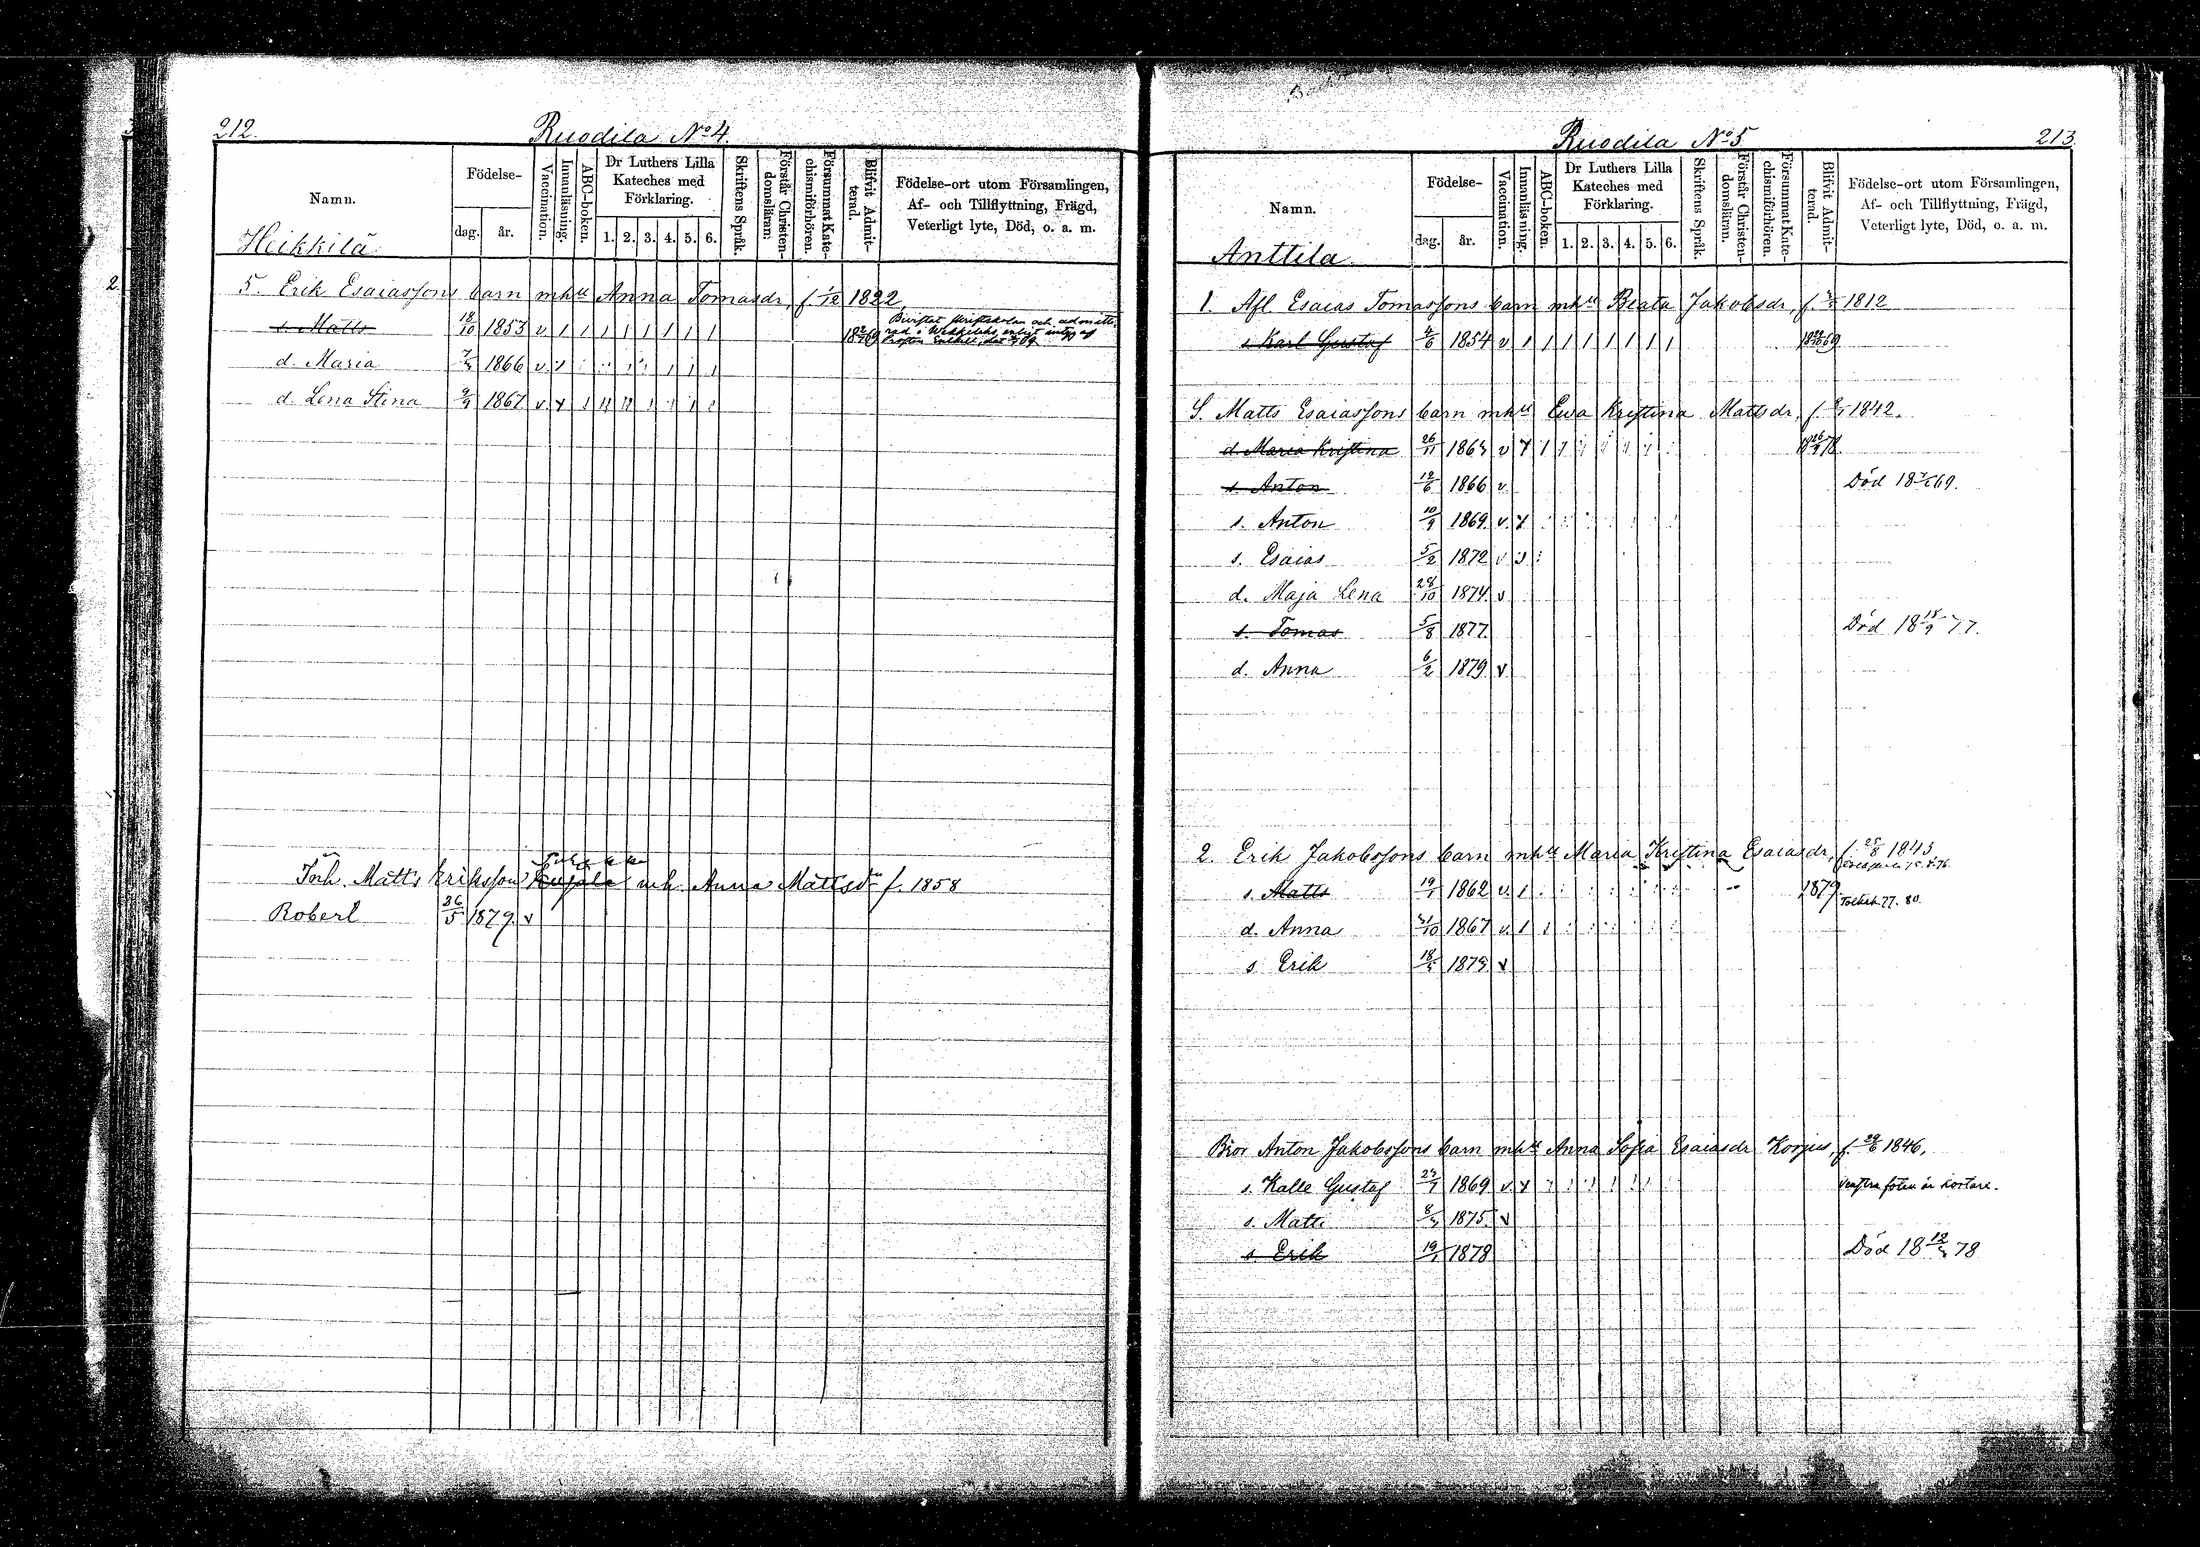 212.
Ruodila No 4.
Namn.
Födelse-
dag.
år.
Vaccination.
Innanläsning.
ABC-boken.
Dr Luthers Lilla Kateches med Förklaring.
1. 2. 3. 4. 5. 6.
Skriftens Språk.
Förstår Christendomsläran.
Försummat Katechismiförhören.
Blifvit Admitterad.
Födelse-ort utom Församlingen,
Af- och Tillflyttning, Frägd,
Veterligt lyte, Död, o. a. m.
Heikkilä
5. Erik Esaiassons barn mhu Anna Tomasdr, f 1/12 1822
s. Matts 18/10 1853 v 1 1 1 1 1 1 1 1
d. Maria 1866 v
d. Lena Stina 9/9 1867 v
Inh. Matts Eriksson Kujala mh. Anna Mattsdr f. 1858
Robert 26/5 1879 v
213.
Ruodila No 5
Namn.
Födelse-
dag.
år.
Vaccination.
Innanläsning.
ABC-boken.
Dr Luthers Lilla Kateches med Förklaring.
1. 2. 3. 4. 5. 6.
Skriftens Språk.
Förstår Christendomsläran.
Försummat Katechismiförhören.
Blifvit Admitterad.
Födelse-ort utom Församlingen,
Af- och Tillflyttning, Frägd,
Veterligt lyte, Död, o. a. m.
Anttila
1. Afl Esaias Tomassons barn mhu Beata Jakobsdr, f. 1812
s. Karl Gustaf 4/6 1854 v 1 1 1 1 1 1 1 1
S. Matts Esaiassons barn mhu Ewa Kristina Mattsdr, f. 1842.
d. Maria Kristina 26/11 1863 v
s. Anton 12/6 1866 v. Död 69.
s. Anton 10/9 1869 v.
s. Esaias 5/2 1872 v
d. Maja Lena 28/10 1874 v
s. Tomas 5/8 1877. Död 18 18/9 77.
d. Anna 6/2 1879 v
2. Erik Jakobssons barn mhu Maria Kristina Esaiasdr, f. 25/8 1843
s. Matts 19/1 1862 v. 1 1879 Folksk. 77. 80.
d. Anna 1867 v. 1
s. Erik 1873 v
Bror Anton Jakobssons barn mhu Anna Sofia Esaiasdr Korpus, f. 29/6 1846.
s. Kalle Gustaf 1869 v. venstra foten är kortare.
s. Matts 1875. v
s. Erik 19/1 1878 Död 78